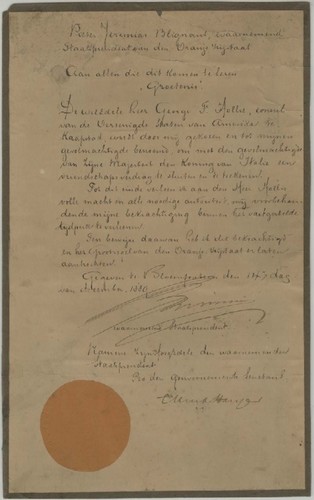 Pieter Jeremias Blignaut, waarnemend
Staatspresident van den Oranje Vrijstaat
Aan allen die dit komen te lezen
"Groetenis"
De weledele heer George F. Hollis, consul
van de Vereenigde Staten van Amerika te
Kaapstad, wordt door mij gekozen en tot mijnen
gevolmachtigde benoemd om met den gevolmachtigde
van Zijne Majesteit den Koning van Italie een
vriendschapsverdrag te sluiten en te teekenen.
Tot dit einde verleen ik aan den Heer Hollis
volle macht en alle noodige autoriteit, mij voorbehou-
dende mijne bekrachtiging binnen
tijdperk te verleenen.
Ten bewijze daarvan heb ik dit
en het grootzegel van den Oranje Vrijstaat er laten
aanhechten.
Gegeven te Bloemfontein, den dag
van December, 1889
waarnemende Staatspresident
Namens Zijn HoogEdele den waarnemenden
Staatspresident
Pro den Gouvernements Secretaris